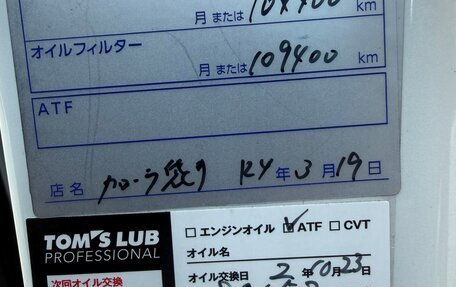 月 または 104400 km
オイルフィルター
月 または 109400 km
ATF
店名 カローラ R4年3月19日
TOM'S LUB
PROFESSIONAL
次回オイル交換
□エンジンオイル ☑ATF □CVT
オイル名
オイル交換日 2年10月23日